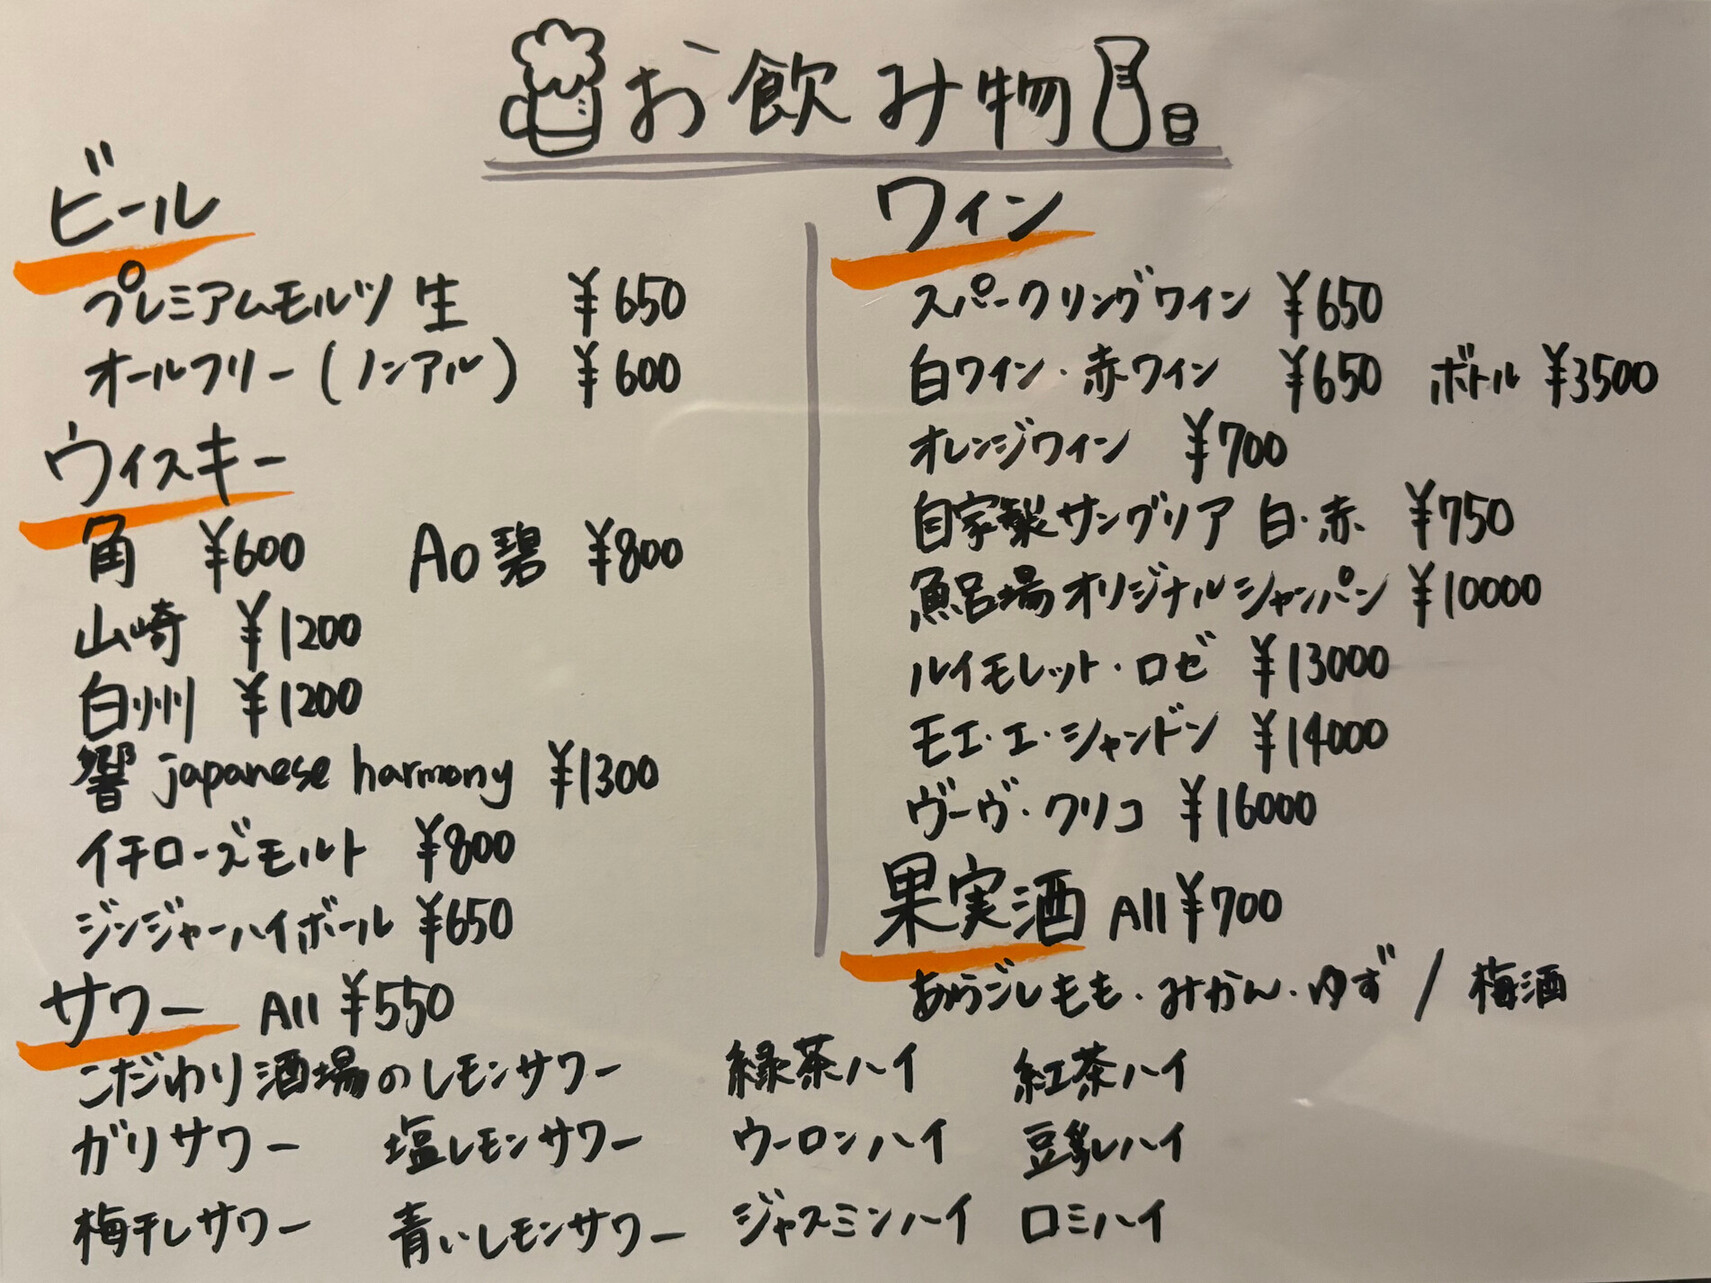 お飲み物
ビール
プレミアムモルツ 生 ¥650
オールフリー(ノンアル) ¥600
ウィスキー
角 ¥600 Ao 碧 ¥800
山崎 ¥1200
白州 ¥1200
響 japanese harmony ¥1300
イチローズモルト ¥800
ジンジャーハイボール ¥650
サワー All ¥550
こだわり酒場のレモンサワー 緑茶ハイ 紅茶ハイ
ガリサワー 塩レモンサワー ウーロンハイ 豆乳ハイ
梅干しサワー 青いレモンサワー ジャスミンハイ ロミハイ
ワイン
スパークリングワイン ¥650
白ワイン・赤ワイン ¥650 ボトル ¥3500
オレンジワイン ¥700
自家製サングリア 白・赤 ¥750
魚呂場オリジナルシャンパン ¥10000
ルイモレット・ロゼ ¥13000
モエ・エ・シャンドン ¥14000
ヴーヴ・クリコ ¥16000
果実酒 All ¥700
あらごしもも・みかん・ゆず / 梅酒